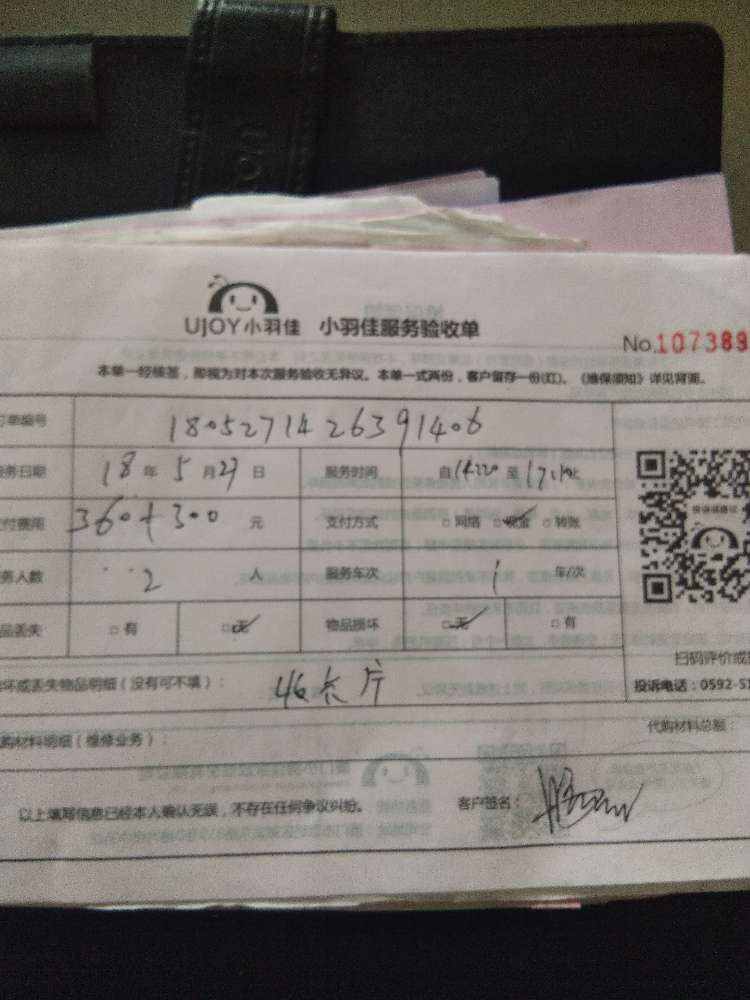 UJOY小羽佳 小羽佳服务验收单
No.107389
本单一经核签，即视为对本次服务验收无异议。本单一式两份，客户留存一份(红)。《维保须知》详见背面。
订单编号 1805271426391406
服务日期 18年5月27日 服务时间 自14:20至
支付费用 360+300元 支付方式 □网络 □现金 □转账
服务人数 2人 服务车次 1车/次
物品丢失 □有 □无 物品损坏 □无 □有
扫码评价或
损坏或丢失物品明细（没有可不填）：
投诉电话：0592-51
代购材料明细（维修业务）： 代购材料总额：
以上填写信息已经本人确认无误，不存在任何争议纠纷。 客户签名：